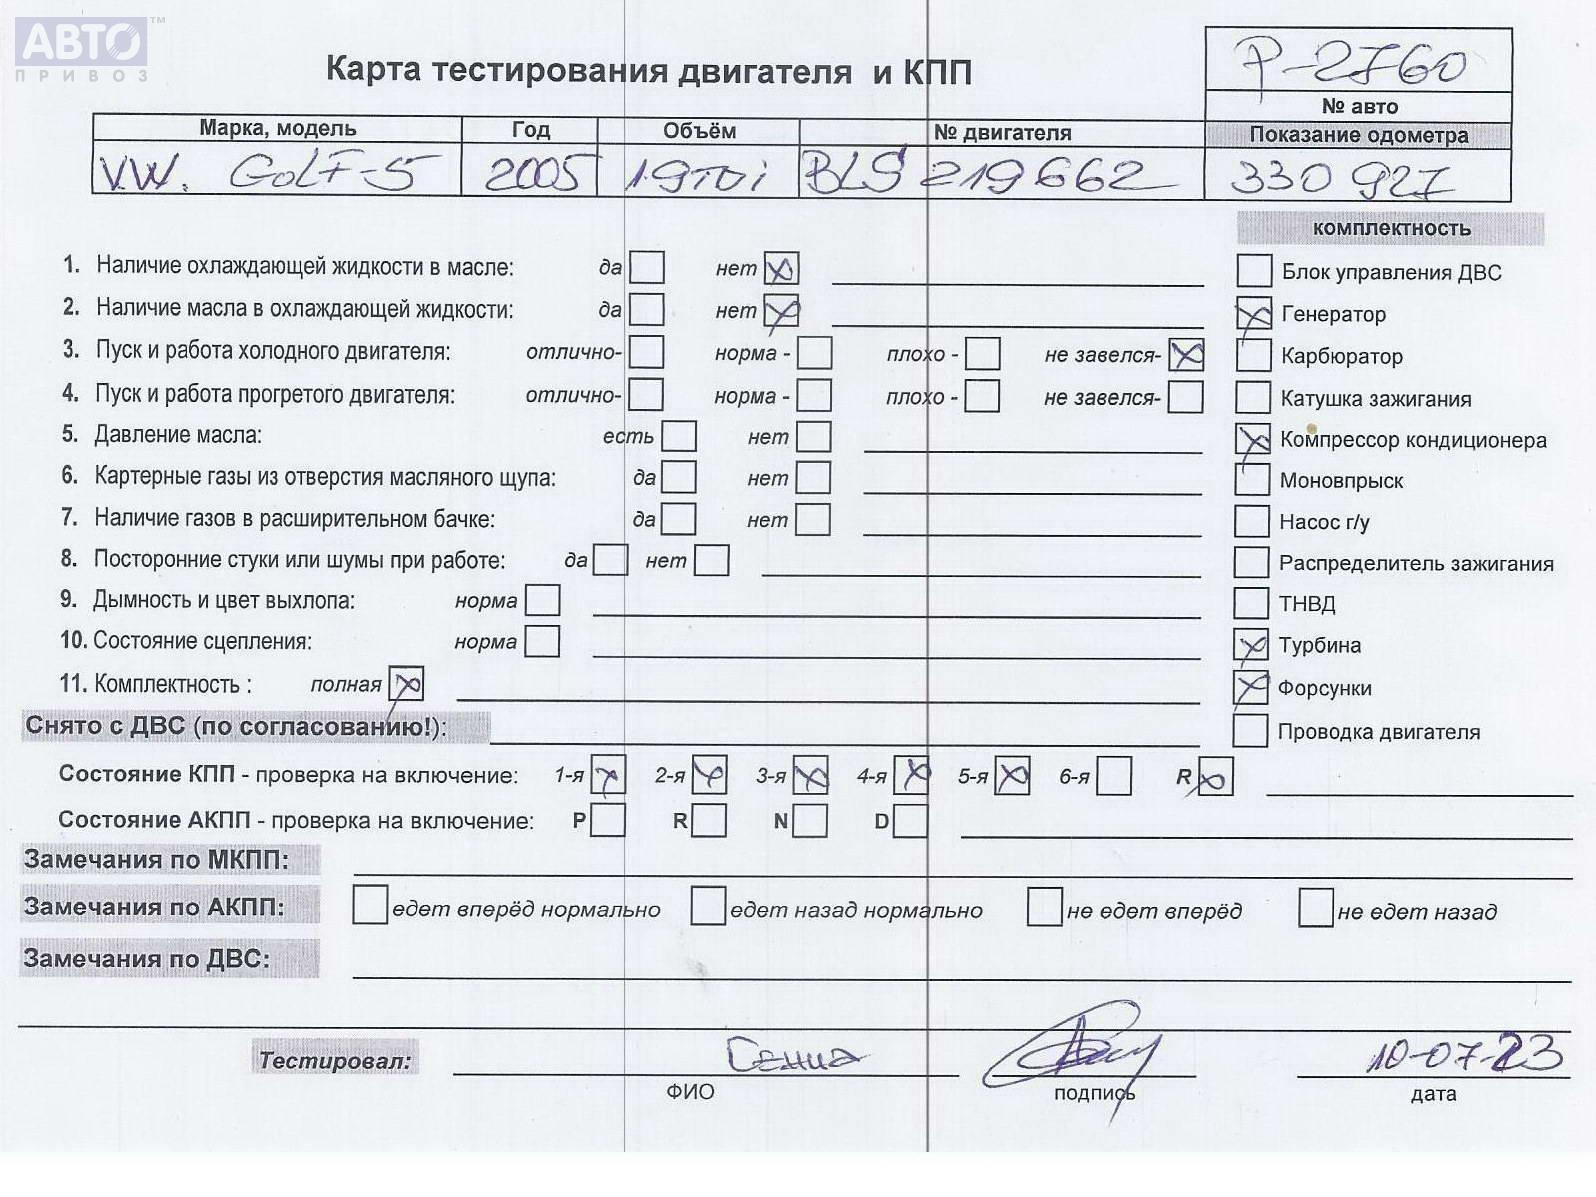 АВТО ™
ПРИВОЗ
Карта тестирования двигателя и КПП
P-2760
№ авто
Марка, модель Год Объём № двигателя Показание одометра
V.W. GOLF-5 2005 1.9TDi BLS 219662 330 927
комплектность
1. Наличие охлаждающей жидкости в масле: да нет Блок управления ДВС
2. Наличие масла в охлаждающей жидкости: да нет Генератор
3. Пуск и работа холодного двигателя: отлично- норма - плохо - не завелся- Карбюратор
4. Пуск и работа прогретого двигателя: отлично- норма - плохо - не завелся- Катушка зажигания
5. Давление масла: есть нет Компрессор кондиционера
6. Картерные газы из отверстия масляного щупа: да нет Моновпрыск
7. Наличие газов в расширительном бачке: да нет Насос г/у
8. Посторонние стуки или шумы при работе: да нет Распределитель зажигания
9. Дымность и цвет выхлопа: норма ТНВД
10. Состояние сцепления: норма Турбина
11. Комплектность : полная Форсунки
Снято с ДВС (по согласованию!): Проводка двигателя
Состояние КПП - проверка на включение: 1-я 2-я 3-я 4-я 5-я 6-я R
Состояние АКПП - проверка на включение: P R N D
Замечания по МКПП:
Замечания по АКПП: едет вперёд нормально едет назад нормально не едет вперёд не едет назад
Замечания по ДВС:
Тестировал: 10-07-23
ФИО подпись дата